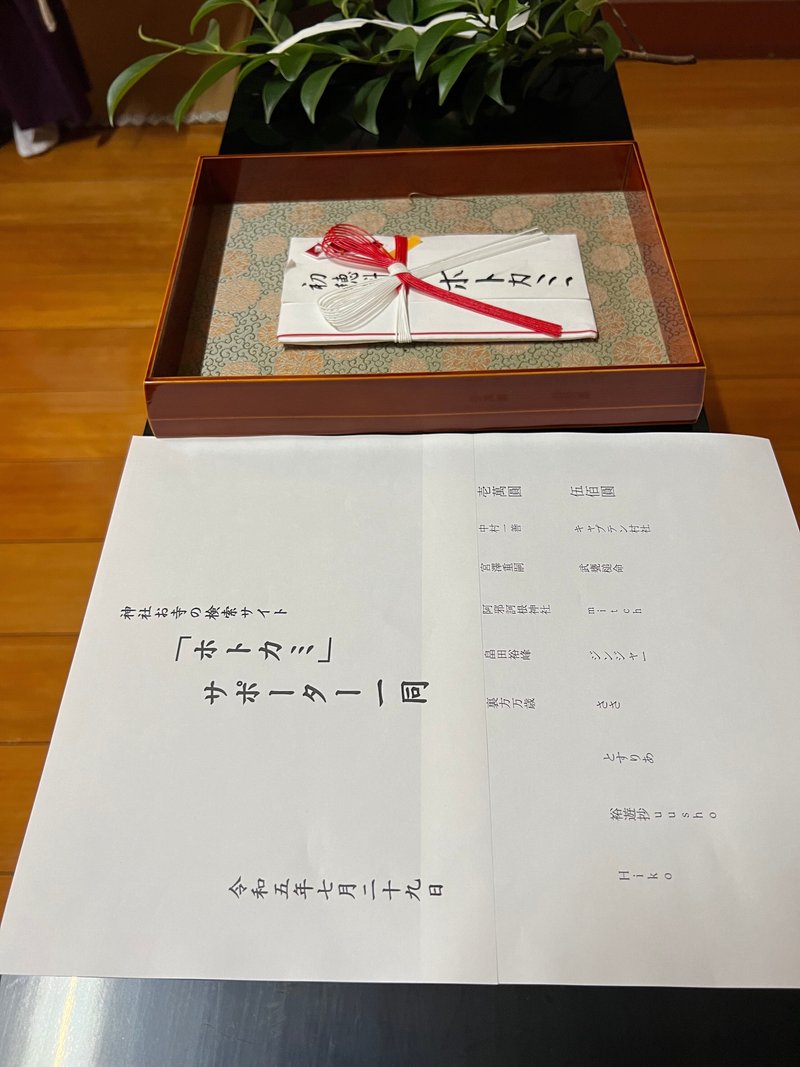 初穂料
ホトカミ
神社お寺の検索サイト
「ホトカミ」
サポーター一同
令和五年七月二十九日
壱萬圓
中村一善
宮澤重嗣
阿邪訶根神社
畠田裕峰
裏方万歳
伍佰圓
キャプテン村社
武甕槌命
mitch
ジンジャー
ささ
とすりあ
裕遊抄uusho
Hiko